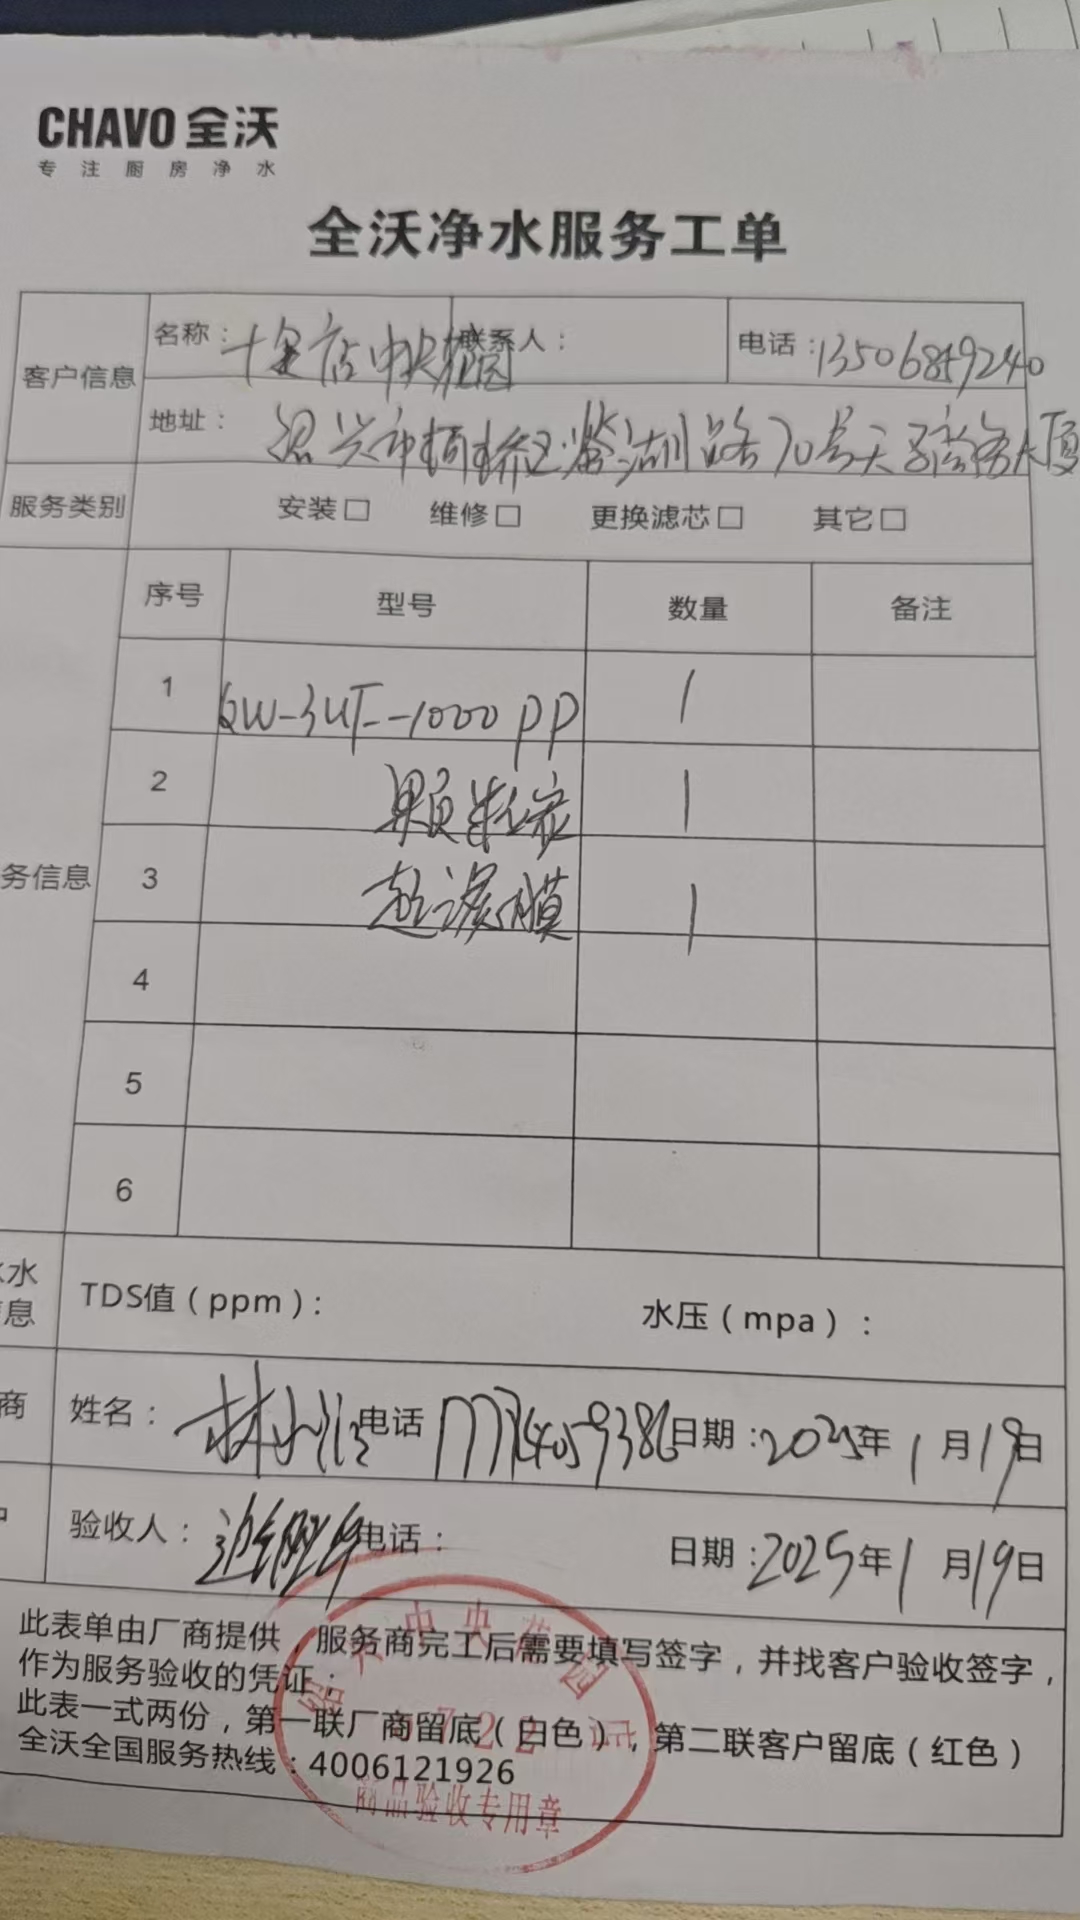 CHAVO 全沃
专注厨房净水
全沃净水服务工单
客户信息
名称：十足店中央花园 联系人： 电话：13506859240
地址：绍兴市柯桥区鉴湖路70号天 商务大厦
服务类别 安装□ 维修□ 更换滤芯□ 其它□
务信息
序号 型号 数量 备注
1 QW-3UF--1000 PP 1
2 颗粒炭 1
3 超滤膜 1
4
5
6
水 TDS值（ppm）： 水压（mpa）：
息
商 姓名：林 电话 9386 日期：2025年1月19日
验收人： 电话： 日期：2025年1月19日
此表单由厂商提供，服务商完工后需要填写签字，并找客户验收签字，
作为服务验收的凭证；
此表一式两份，第一联厂商留底（白色），第二联客户留底（红色）
全沃全国服务热线：4006121926
中央花园店
722
商品验收专用章